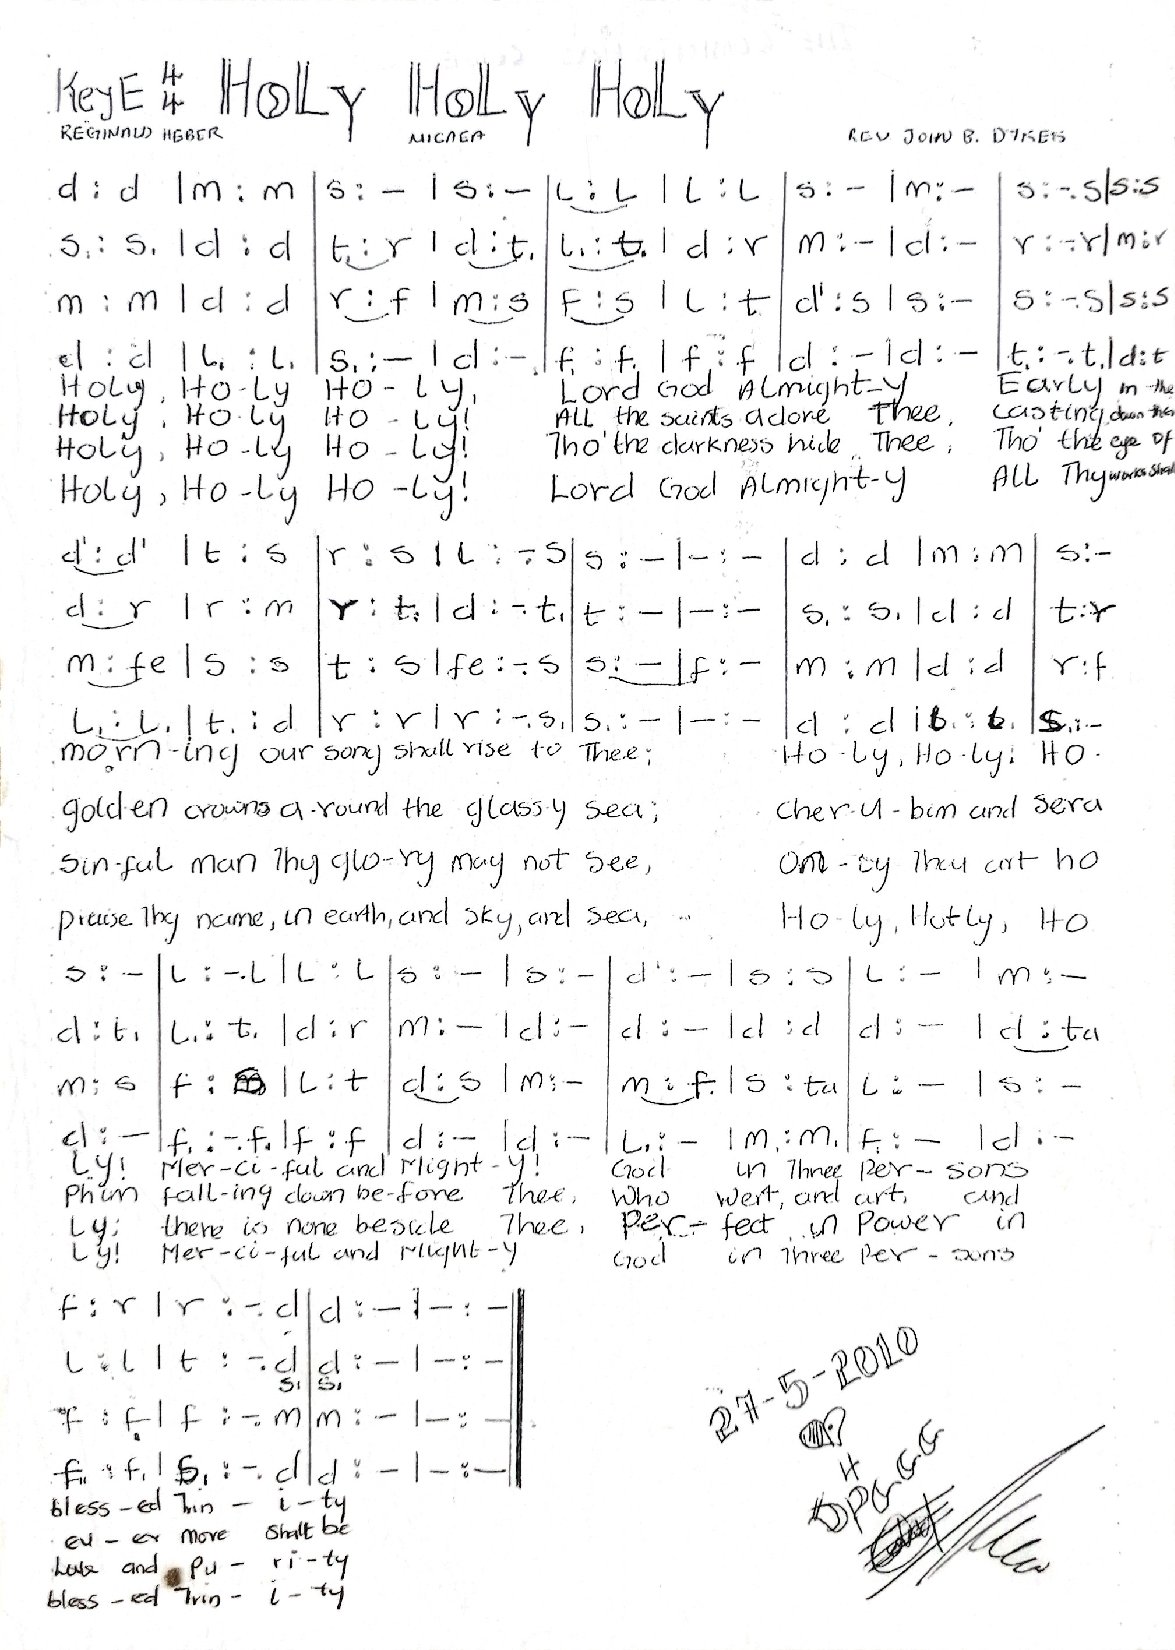 Key E 4/4 HOLY HOLY HOLY
REGINALD HEBER NICAEA REV JOHN B. DYKES
d : d | m : m | s : – | s : – | L : L | L : L | s : – | m : – | s : –. s | s : s
s, : s, | d : d | t, : r | d : t, | L, : t, | d : r | m : – | d : – | r : –. r | m : r
m : m | d : d | r : f | m : s | F : s | L : t | d' : s | s : – | s : –. s | s : s
d : d | L, : L, | s, : – | d : – | f, : f, | f : f | d : – | d : – | t, : –. t, | d : t
HOLY, HO-LY HO-LY, Lord God Almight-y Early in the
Holy, HO-LY HO-Ly! All the saints adore Thee, casting down their
HOLy, HO-Ly HO-Ly! Tho' the darkness hide Thee, Tho' the eye of
Holy, HO-Ly HO-Ly! Lord God Almight-y ALL Thy works shall
d' : d' | t : s | r : s | L : –. s | s : – | – : – | d : d | m : m | s : –
d : r | r : m | r : t, | d : –. t, | t : – | – : – | s, : s, | d : d | t : r
m : fe | s : s | t : s | fe : –. s | s : – | f : – | m : m | d : d | r : f
L, : L, | t, : d | r : r | r : –. s, | s, : – | – : – | d : d | L, : L, | s, : –
morn-ing our song shall rise to Thee; Ho-ly, Ho-ly; HO-
golden crowns a-round the glass-y sea; Cher-u-bim and sera
Sin-ful man Thy glo-ry may not see, Thou art ho
praise Thy name, in earth, and sky, and sea, Ho-ly, HO
s : – | L : –. L | L : L | s : – | s : – | d' : – | s : s | L : – | m : –
d : t, | L, : t, | d : r | m : – | d : – | d : – | d : d | d : – | d : ta
m : s | f : | L : t | d : s | m : – | m : f | s : ta | L : – | s : –
d : – | f, : –. f, | f : f | d : – | d : – | L, : – | m, : m, | F, : – | d : –
Ly! Mer-ci-ful and Might-y! God in Three Per-sons
Phim fall-ing down be-fore Thee, Who wert, and art, and
Ly; there is none beside Thee, Per-fect in Power in
Ly! Mer-ci-ful and Might-y God in Three Per-sons
f : r | r : –. d | d : – | – : –
L : L | t : –. d | d : – | – : –
s, s,
f : f | f : –. m | m : – | – : –
f, : f, | s, : –. d | d : – | – : –
bless-ed Trin-i-ty
ev-er more shalt be
Love and Pu-ri-ty
bless-ed Trin-i-ty
27-5-2010